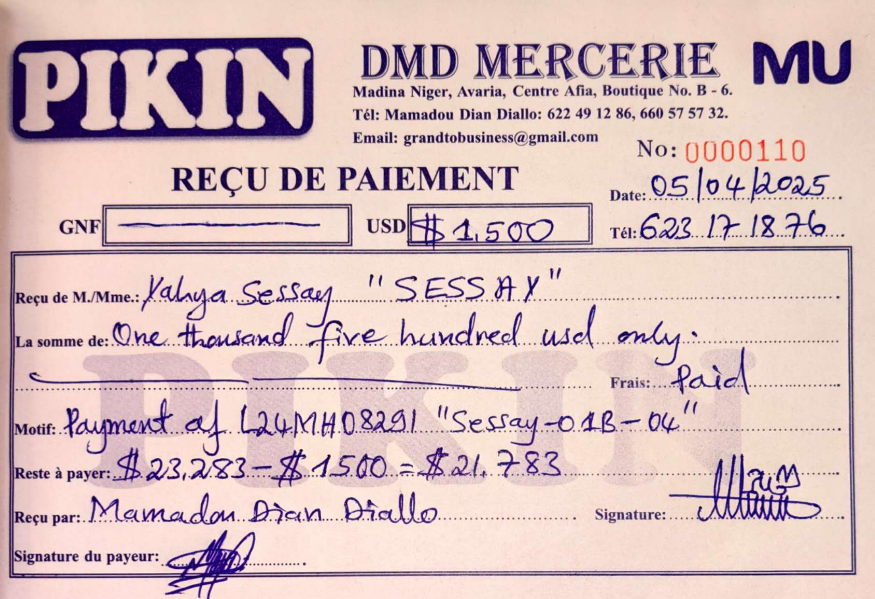 PIKIN
DMD MERCERIE
MU
Madina Niger, Avaria, Centre Afia, Boutique No. B - 6.
Tél: Mamadou Dian Diallo: 622 49 12 86, 660 57 57 32.
Email: grandtobusiness@gmail.com
No: 0000110
REÇU DE PAIEMENT
Date: 05/04/2025
GNF
USD $ 1,500
Tél: 623 17 18 76
Reçu de M./Mme.: Yahya Sessay "SESSAY"
La somme de: One thousand five hundred usd only.
Frais: Paid
Motif: Payment of L24MH08291 "Sessay-01B-04"
Reste à payer: $ 23,283 - $ 1500 = $ 21,783
Reçu par: Mamadou Dian Diallo
Signature:
Signature du payeur:
PIKIN